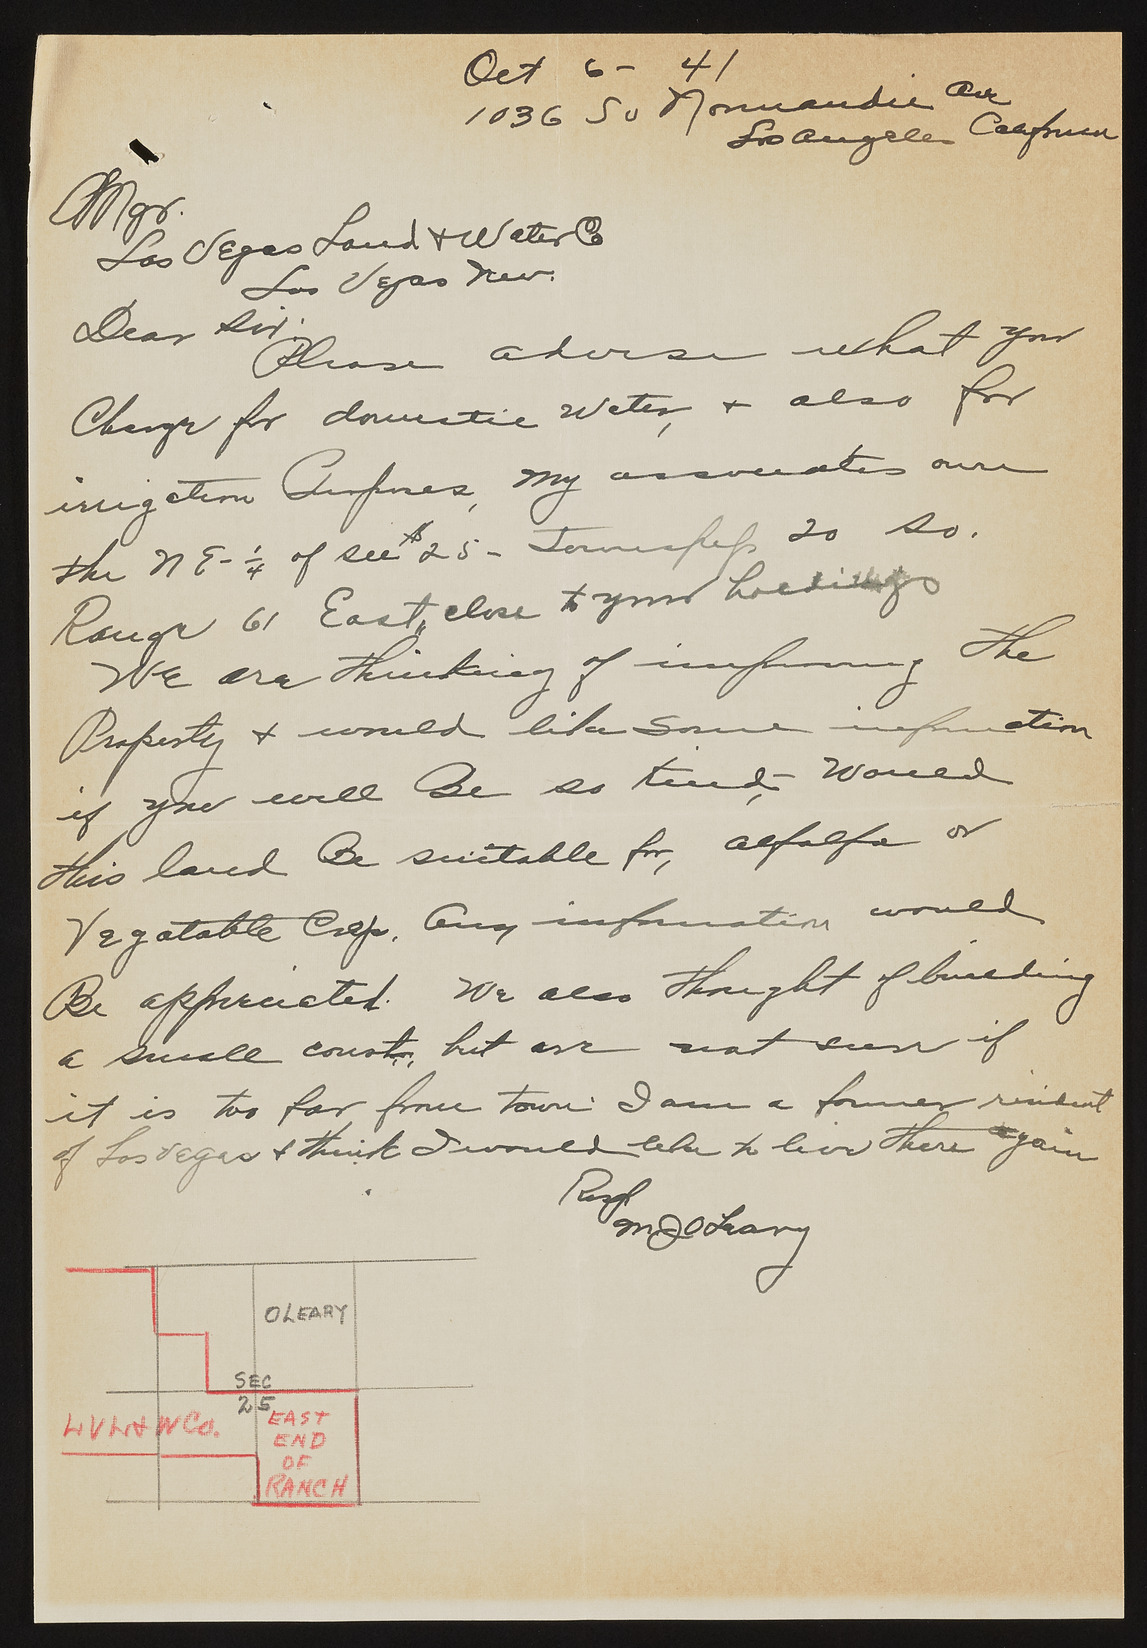 Oct 6 - 41
1036 So Normandie Ave
Los Angeles California
Mgr.
Las Vegas Land & Water Co
Las Vegas Nev.
Dear Sir:
Please advise what you
Charge for domestic Water, & also for
irrigation Purposes, My associates own
the N E - 1/4 of sec 25 - Township 20 So.
Range 61 East, close to your holdings
We are thinking of improving the
Property & would like some information
if you will Be so kind, Would
this land Be suitable for, alfalfa or
Vegatable Crop. Any information would
Be appreciated. We also thought of building
a small court, but are not sure if
it is too far from town. I am a former resident
of Las Vegas & think I would like to live there again
Resp
M J O Leary
O LEARY
SEC
25
L V L & W CO.
EAST
END
OF
RANCH